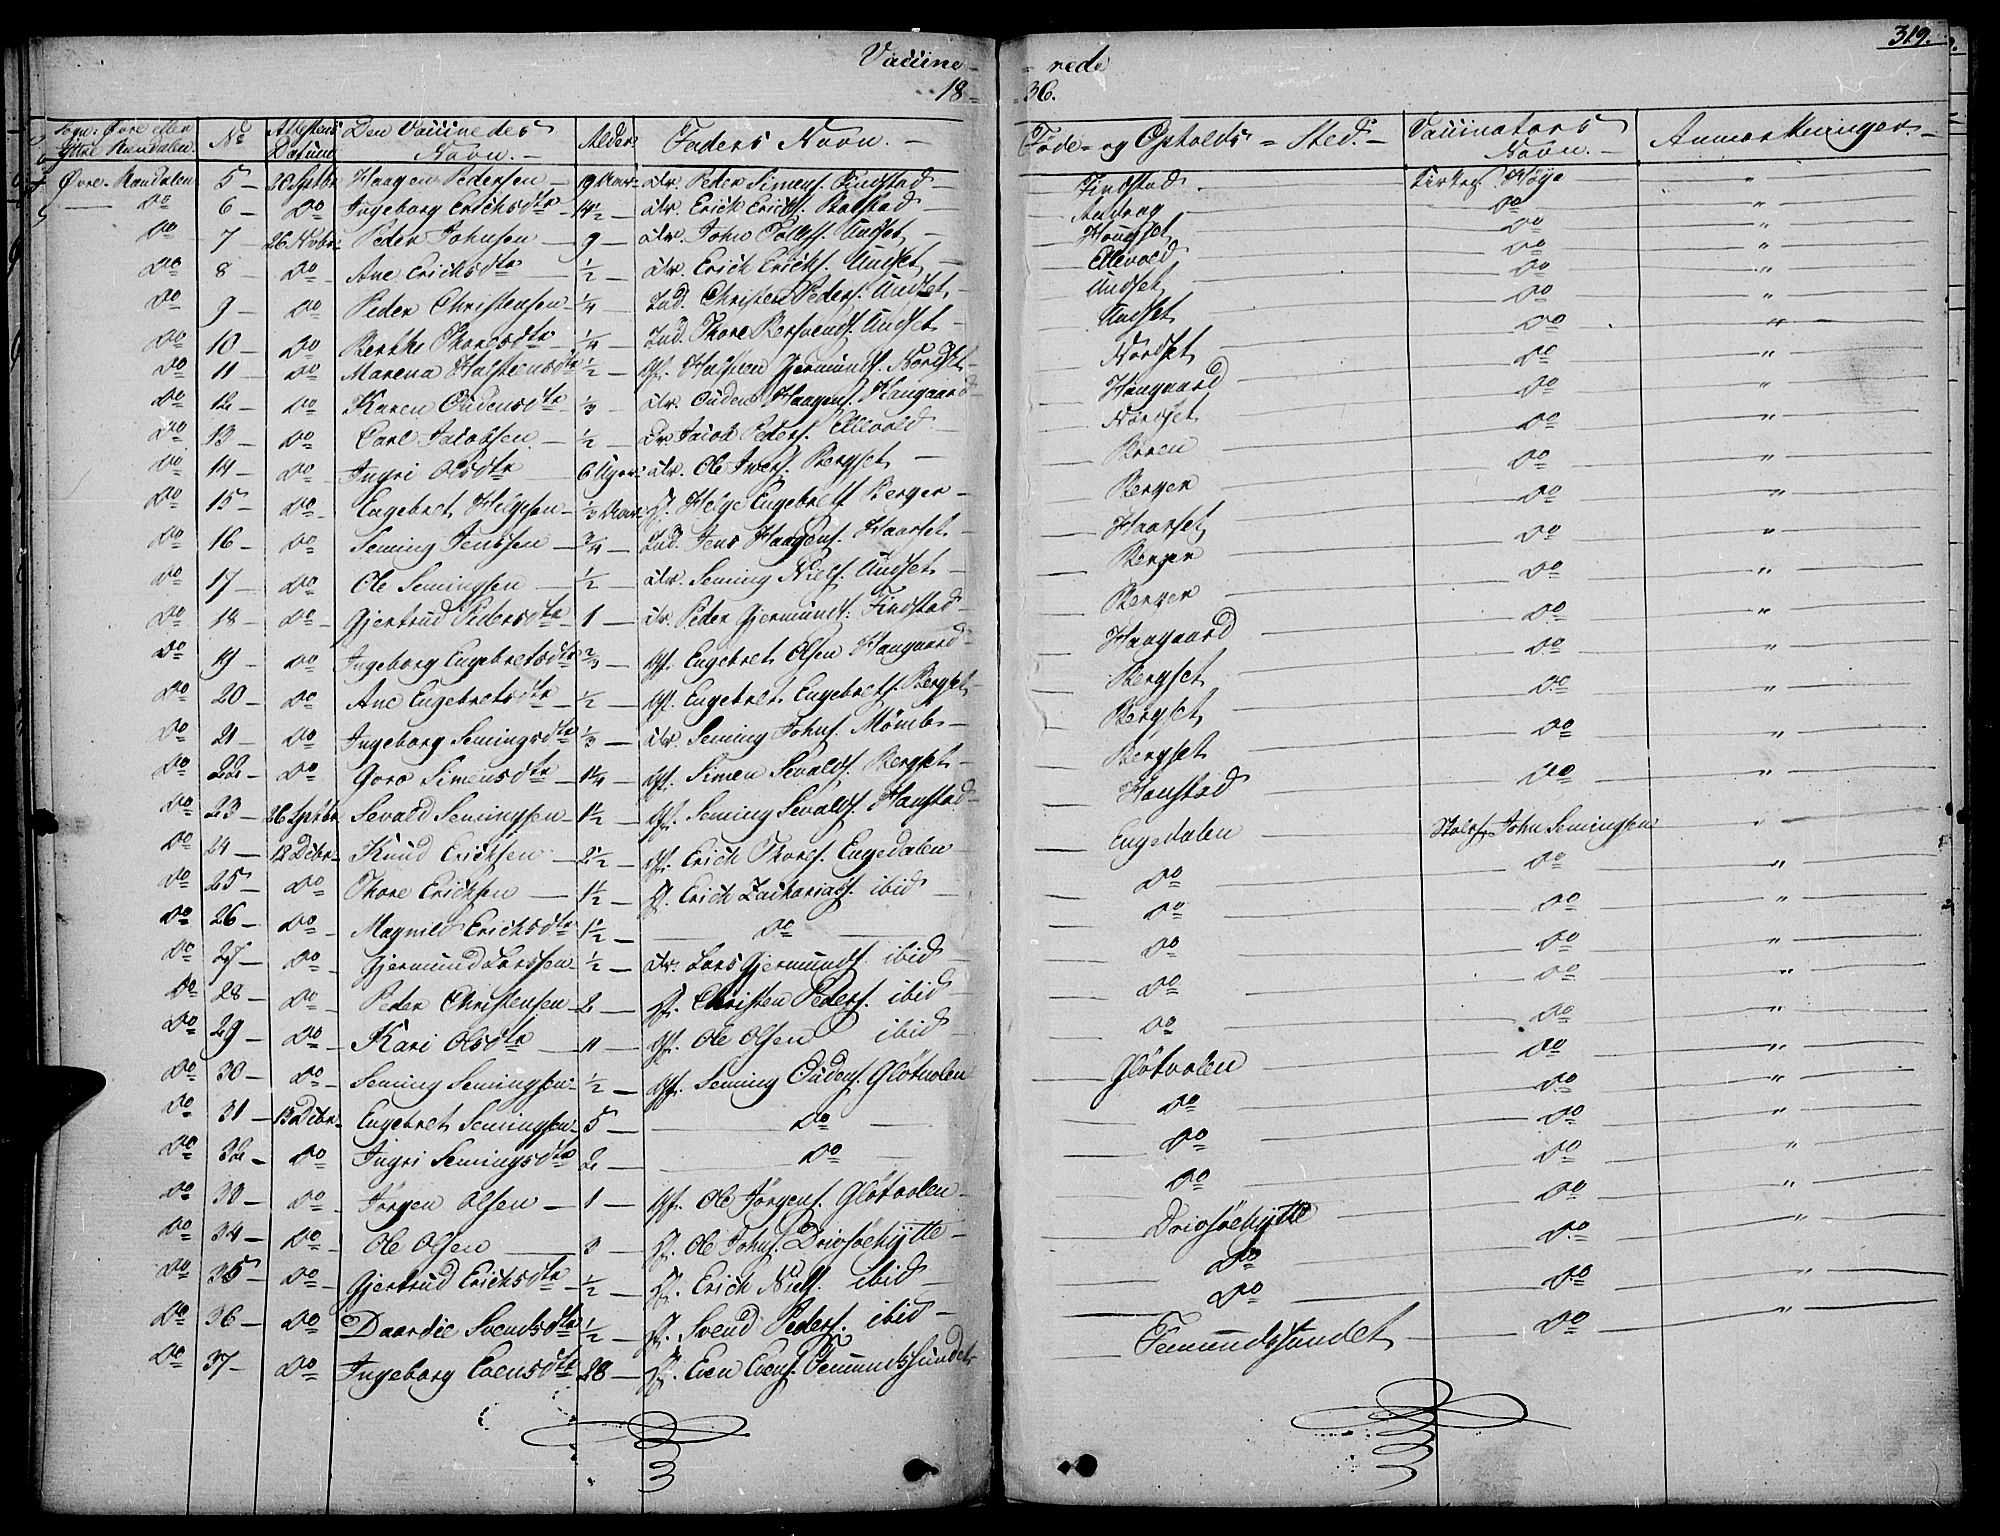 319.
Vaccine- = rede
18= =36.
Sogn: Øvre eller Yttre Rendalen. | No | Attestens Datum | Den Vaccinedes Navn. | Alder | Faders Navn. | Føde- og Opholds-Sted. | Vaccinators Navn. | Anmærkninger
Øvre-Rendalen 5 20 Septbr Haagen Pedersen 9 Aar Peder Simens. Findstad Findstad Kirkes. Høye "
Do 6 Do Ingeborg Erichsdtr Erich Erichs. Do "
Do 7 26 Novbr Peder Johnsen 9 John Undset Do "
Do 8 Do Ane Erichsdtr 1/2 Erich Erichs. Undset Ellevold Do "
Do 9 Do Peder Christensen 1/4 Ind. Christen Peders. Undset Undset Do "
Do 10 Do Berthe Thoresdtr 1/4 Ind. Thore Undset Undset Do "
Do 11 Do Marena Halstensdtr 1/2 Halsten Gjermunds. Nordset Nordset Do "
Do 12 Do Karen Oudensdtr 1/3 Ouden Haagens. Haagaard Haagaard Do "
Do 13 Do Carl Jacobsen 1/2 Jacob Peders. Ellevold Nordset Do "
Do 14 Do Ingri Olsdtr 6 Uger Ole Ivers. Bergset Do "
Do 15 Do Engebret Helgesen 1/3 Aar Helge Engebrets. Berger Berger Do "
Do 16 Do Seming Jenssen 3/4 Ind. Jens Haagens. Haarset Haarset Do "
Do 17 Do Ole Semingsen 1/2 Seming Niels. Undset Berger Do "
Do 18 Do Gjertrud Pedersdtr 1 Peder Gjermunds. Findstad Berger Do "
Do 19 Do Ingeborg Engebretsdtr 2/3 Engebret Olsen Haagaard Haagaard Do "
Do 20 Do Ane Engebretsdtr 1/2 Engebret Engebrets. Bergset Bergset Do "
Do 21 Do Ingeborg Semingsdtr 1/3 Seming Johns. Bergset Do "
Do 22 Do Goro Simensdtr 1 1/4 Simen Sevalds. Bergset Bergset Do "
Do 23 26 Septbr Sevald Semingsen 1 1/2 Seming Sevalds. Hanstad Hanstad Do "
Do 24 12 Decbr Knud Erichsen 2 1/2 Erich Thores. Engedalen Engedalen John Semingsen "
Do 25 Do Thore Erichsen 1 1/2 Erich Zacharias. ibid Do Do "
Do 26 Do Magnild Erichsdtr 1 1/2 Do Do Do "
Do 27 Do Gjermund Larssen 1/2 Lars Gjermunds. ibid Do Do "
Do 28 Do Peder Christensen 2 Christen Peders. ibid Do Do "
Do 29 Do Kari Olsdtr 11 Ole Olsen ibid Do Do "
Do 30 Do Seming Semingsen 1/2 Seming Oudens. Gløtvolen Gløtvolen Do "
Do 31 13 Decbr Engebret Semingsen 5 Do Do Do "
Do 32 Do Ingri Semingsdtr 2 Do Do Do "
Do 33 Do Jørgen Olsen 1 Ole Jørgens. Gløtvolen Do Do "
Do 34 Do Ole Olsen 3 Ole Johns. Drivsøehytte Drivsøehytte Do "
Do 35 Do Gjertrud Erichsdtr 1/2 Erich Niels. ibid Do Do "
Do 36 Do Daardie Svendsdtr 1/2 Svend Peders. ibid Do Do "
Do 37 Do Ingeborg Evensdtr 28 Even Evens. Femundssundet Femundssundet Do "